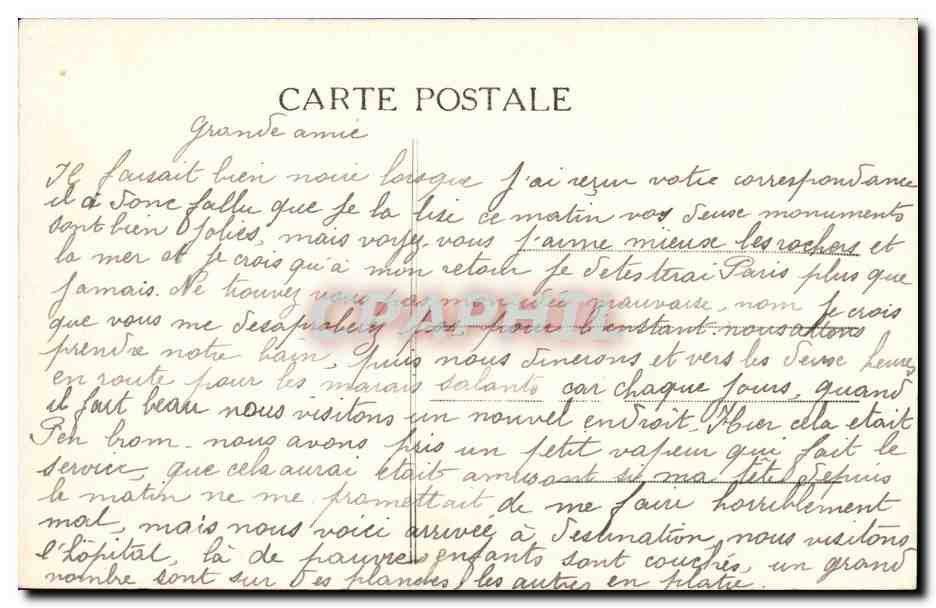 CARTE POSTALE
Grande amie
Il faisait bien noire lorsque j'ai reçu votre correspondance
il a donc fallu que je la lise ce matin vos deuse monuments
sont bien jolies, mais voyez-vous j'aime mieuse les rochers et
la mer et je crois qu'à mon retour je detesterai Paris plus que
jamais. Ne trouvez vous pas mon idée mauvaise, nom je crois
que vous me desaprobez pas, pour l'instant nous allons
prendre notre bain, puis nous dinerons et vers les deuse heures
en route pour les marais salants car chaque jours, quand
il fait beau nous visitons un nouvel endroit. Hier cela etait
Pen brom. nous avons pris un petit vapeur qui fait le
service, que cela aurai etait amusant si ma tête depuis
le matin ne me promettait de me faire horriblement
mal, mais nous voici arrivée à destination, nous visitons
l'hôpital, là de pauvre enfants sont couchés, un grand
nombre sont sur des planches, les autres en platre.
CPAPHIL